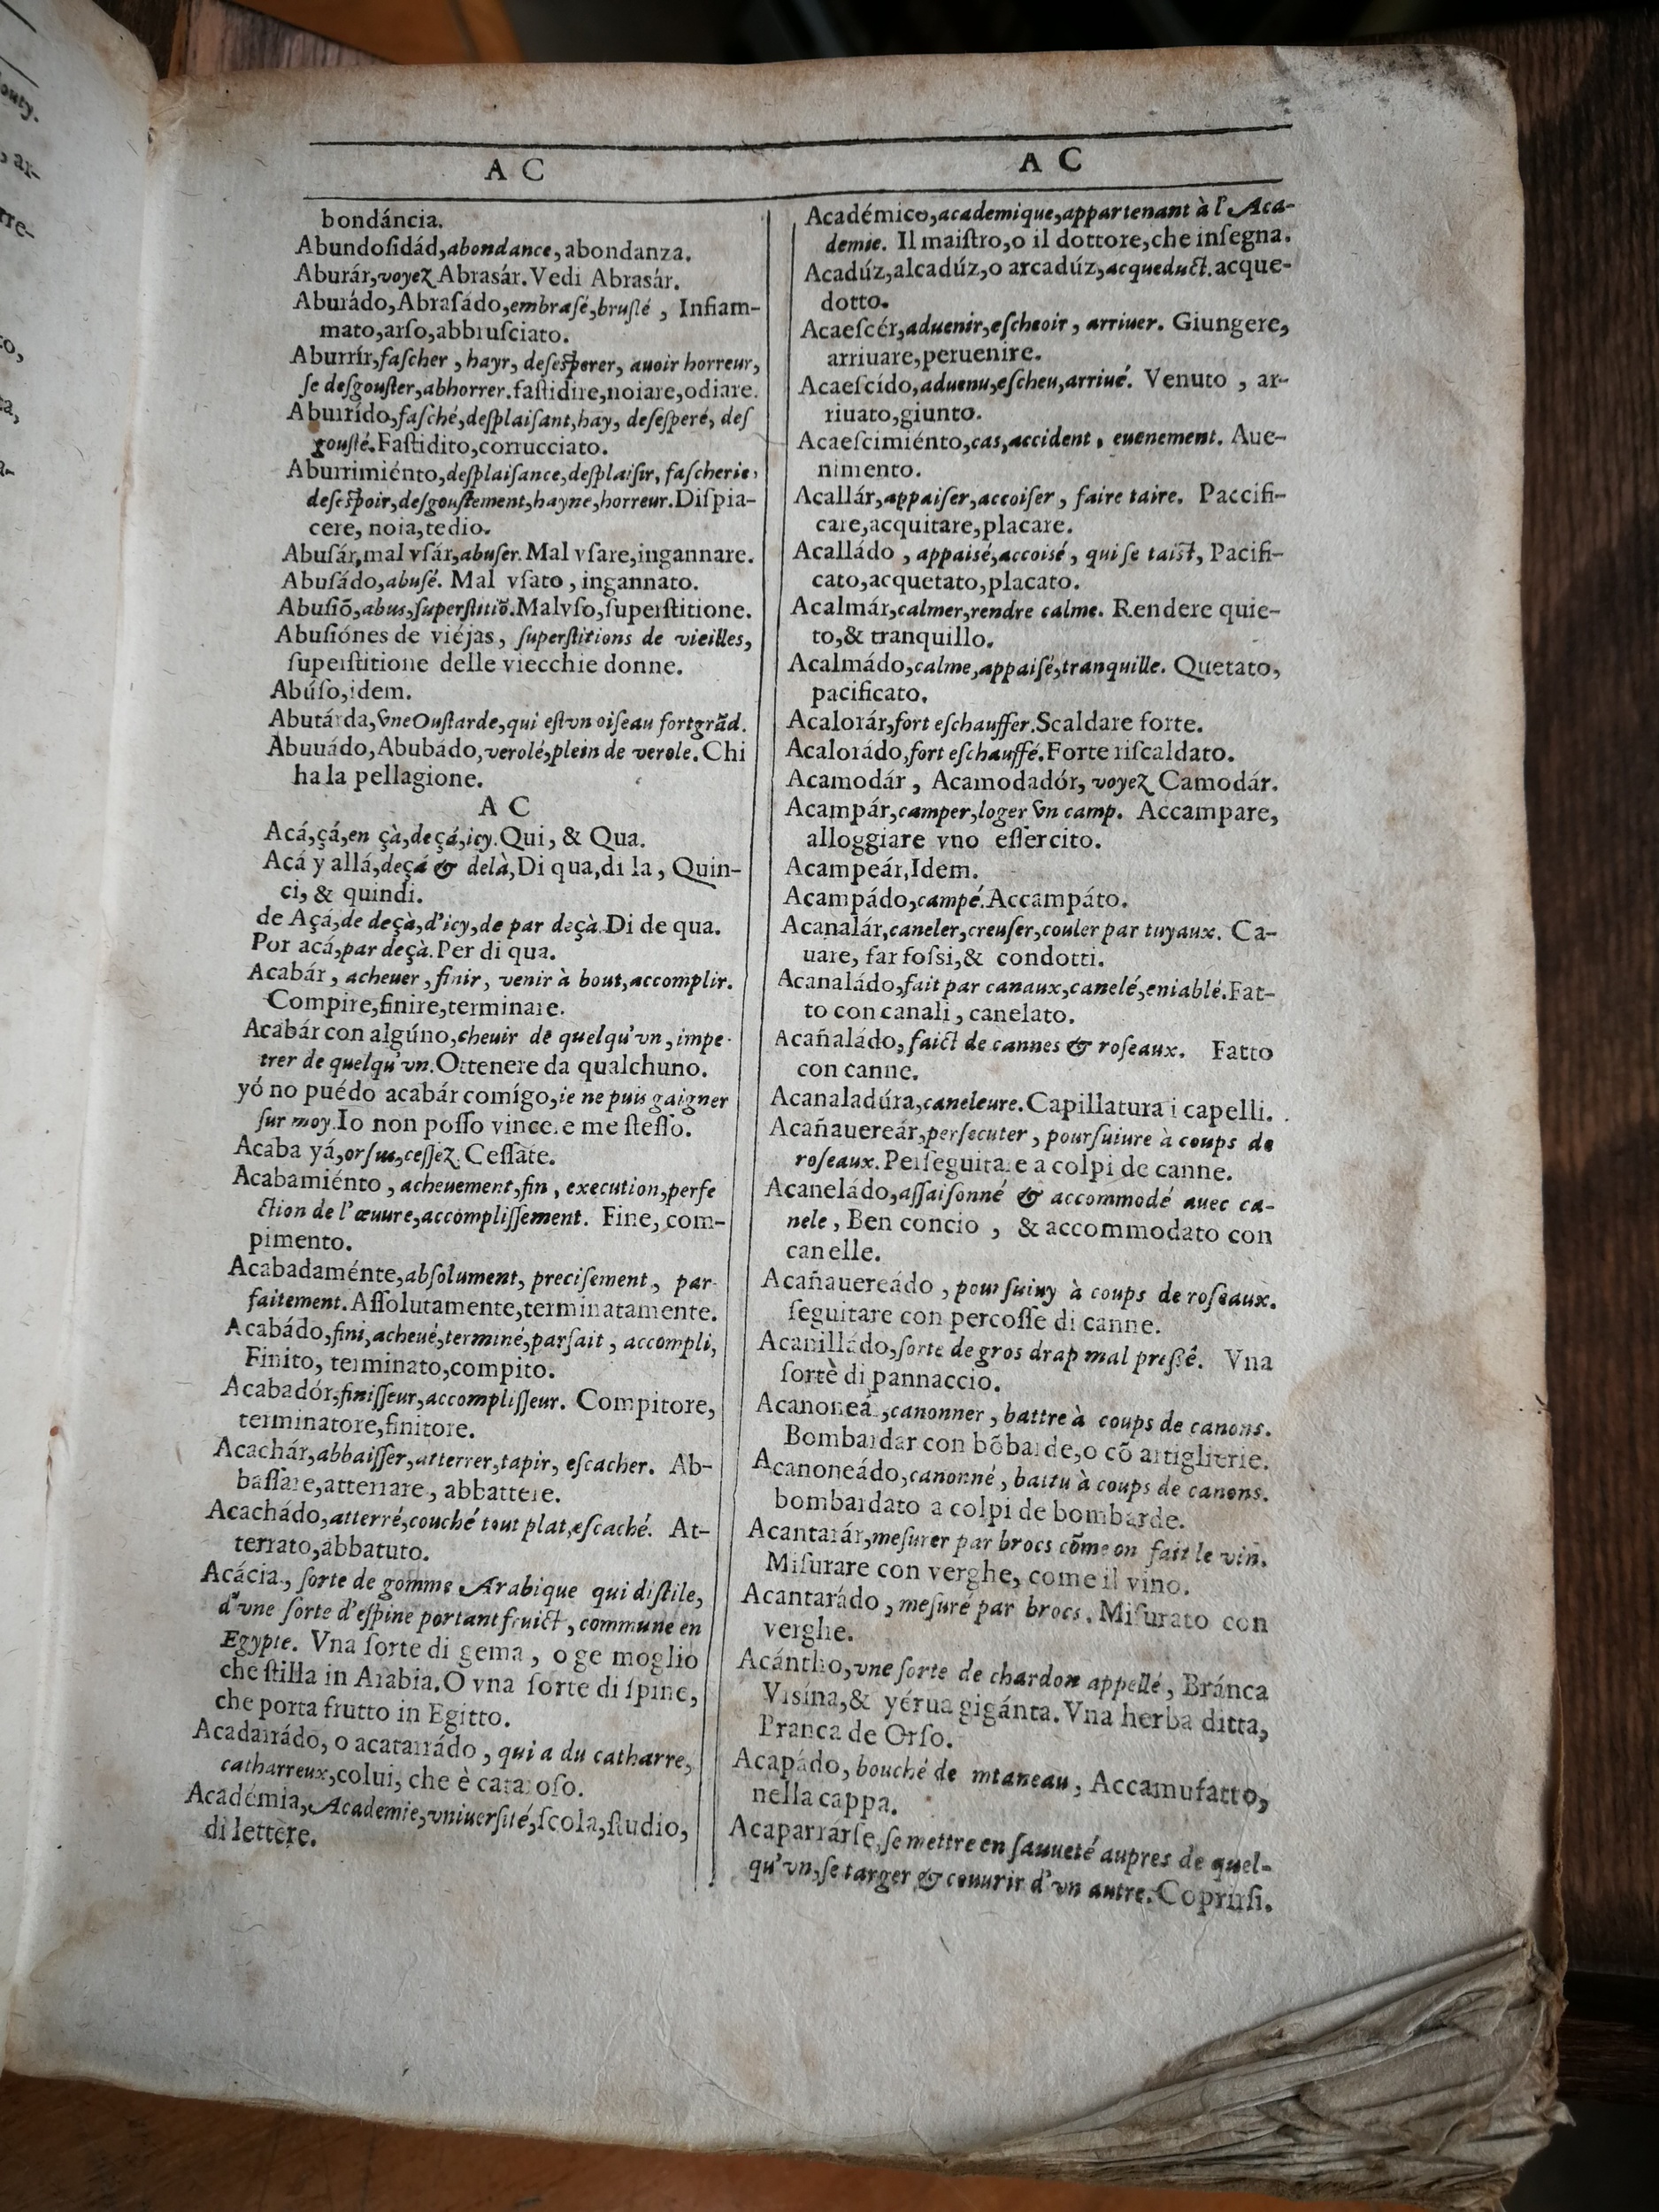 A C
bondáncia.
Abundoſidád, abondance, abondanza.
Aburár, voyez Abrasár. Vedi Abrasár.
Aburádo, Abraſádo, embraſé, bruſlé , Infiam-
mato, arſo, abbruſciato.
Aburrír, faſcher , hayr, deſeſperer, auoir horreur,
ſe deſgouſter, abhorrer. faſtidire, noiare, odiare.
Aburrído, faſché, deſplaiſant, hay, deſeſperé, deſ
gouſté. Faſtidito, corrucciato.
Aburrimiénto, deſplaiſance, deſplaiſir, faſcherie,
deſeſpoir, deſgouſtement, hayne, horreur. Diſpia-
cere, noia, tedio.
Abuſár, mal vſár, abuſer. Mal vſare, ingannare.
Abuſádo, abuſé. Mal vſato , ingannato.
Abuſiõ, abus, ſuperſtitiõ. Malvſo, ſuperſtitione.
Abuſiónes de viéjas , ſuperſtitions de vieilles,
ſuperſtitione delle viecchie donne.
Abúſo, idem.
Abutárda, vne Ouſtarde, qui eſt vn oiſeau fort grãd.
Abuuádo, Abubádo, verolé, plein de verole. Chi
ha la pellagione.
A C
Acá, çá, en çà, deçá, icy. Qui, & Qua.
Acá y allá, deçá & delà, Di qua, di la , Quin-
ci, & quindi.
de Açá, de deçà, d'icy, de par deçà. Di de qua.
Por acá, par deçà. Per di qua.
Acabár , acheuer , finir , venir à bout, accomplir.
Compire, finire, terminare.
Acabár con algúno, cheuir de quelqu'vn , impe-
trer de quelqu'vn. Ottenere da qualchuno.
yó no puédo acabár comígo, ie ne puis gaigner
ſur moy. Io non poſſo vincere me ſteſſo.
Acaba yá, orſus, ceſſez. Ceſſate.
Acabamiénto , acheuement, fin , execution, perfe
ction de l'œuure, accompliſſement. Fine, com-
pimento.
Acabadaménte, abſolument, preciſement , par-
faitement. Aſſolutamente, terminatamente.
Acabádo, fini, acheué, terminé, parfait , accompli,
Finito, terminato, compito.
Acabadór, finiſſeur, accompliſſeur. Compitore,
terminatore, finitore.
Acachár, abbaiſſer, atterrer, tapir, eſcacher. Ab-
baſſare, atterrare , abbattere.
Acachádo, atterré, couché tout plat, eſcaché. At-
terrato, abbatuto.
Acácia , ſorte de gomme Arabique qui diſtile,
d'vne ſorte d'eſpine portant fruict , commune en
Egypte. Vna ſorte di gema , o ge moglio
che ſtilla in Arabia. O vna ſorte di ſpine,
che porta frutto in Egitto.
Acadarrádo, o acatarrádo , qui a du catharre,
catharreux, colui, che è cataroſo.
Académia, Academie, vniuerſité, ſcola, ſtudio,
di lettere.
A C
Académico, academique, appartenant à l'Aca-
demie. Il maiſtro, o il dottore, che inſegna.
Acadúz, alcadúz, o arcadúz, acqueduct. acque-
dotto.
Acaeſcér, aduenir, eſcheoir , arriuer. Giungere,
arriuare, peruenire.
Acaeſcído, aduenu, eſcheu, arriué. Venuto , ar-
riuato, giunto.
Acaeſcimiénto, cas, accident , euenement. Aue-
nimento.
Acallár, appaiſer, accoiſer , faire taire. Paccifi-
care, acquitare, placare.
Acalládo , appaisé, accoisé , qui ſe taiſt, Pacifi-
cato, acquetato, placato.
Acalmár, calmer, rendre calme. Rendere quie-
to, & tranquillo.
Acalmádo, calme, appaiſé, tranquille. Quetato,
pacificato.
Acalorár, fort eſchauffer. Scaldare forte.
Acalorádo, fort eſchauffé. Forte riſcaldato.
Acamodár , Acamodadór, voyez Camodár.
Acampár, camper, loger vn camp. Accampare,
alloggiare vno eſſercito.
Acampeár, Idem.
Acampádo, campé. Accampáto.
Acanalár, caneler, creuſer, couler par tuyaux. Ca-
uare, far foſſi, & condotti.
Acanaládo, fait par canaux, canelé, eniablé. Fat-
to con canali , canelato.
Acañaládo, faict de cannes & roſeaux. Fatto
con canne.
Acanaladúra, caneleure. Capillatura i capelli.
Acañauereár, perſecuter , pourſuiure à coups de
roſeaux. Perſeguitare a colpi de canne.
Acaneládo, aſſaiſonné & accommodé auec ca-
nele , Ben concio , & accommodato con
canelle.
Acañauereádo , pourſuiuy à coups de roſeaux.
ſeguitare con percoſſe di canne.
Acanilládo, ſorte de gros drap mal preſſé. Vna
ſortè di pannaccio.
Acanoneá , canonner , battre à coups de canons.
Bombardar con bõbarde, o cõ artiglierie.
Acanoneádo, canonné , battu à coups de canons.
bombardato a colpi de bombarde.
Acantarár, meſurer par brocs cõme on fait le vin.
Miſurare con verghe, come il vino.
Acantarádo , meſuré par brocs. Miſurato con
verghe.
Acántho, vne ſorte de chardon appellé , Bránca
Vrsína, & yérua gigánta. Vna herba ditta,
Branca de Orſo.
Acapádo, bouché de mtaneau , Accamufatto,
nella cappa.
Acaparrárſe, ſe mettre en ſauueté aupres de quel-
qu'vn, ſe targer & couurir d'vn autre. Coprirſi.